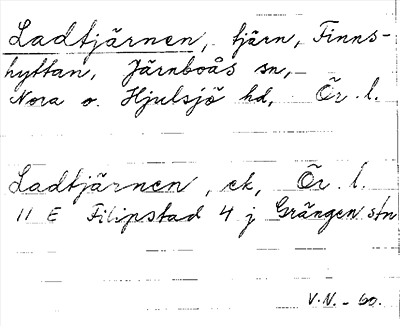 Ladtjärnen, tjärn, Finns-
hyttan, Järnboås sn,
Nora o. Hjulsjö hd, Ör. l.
Ladtjärnen, ek, Ör. l.
11 E Filipstad 4 j Grängen stn
V.N. - 60.